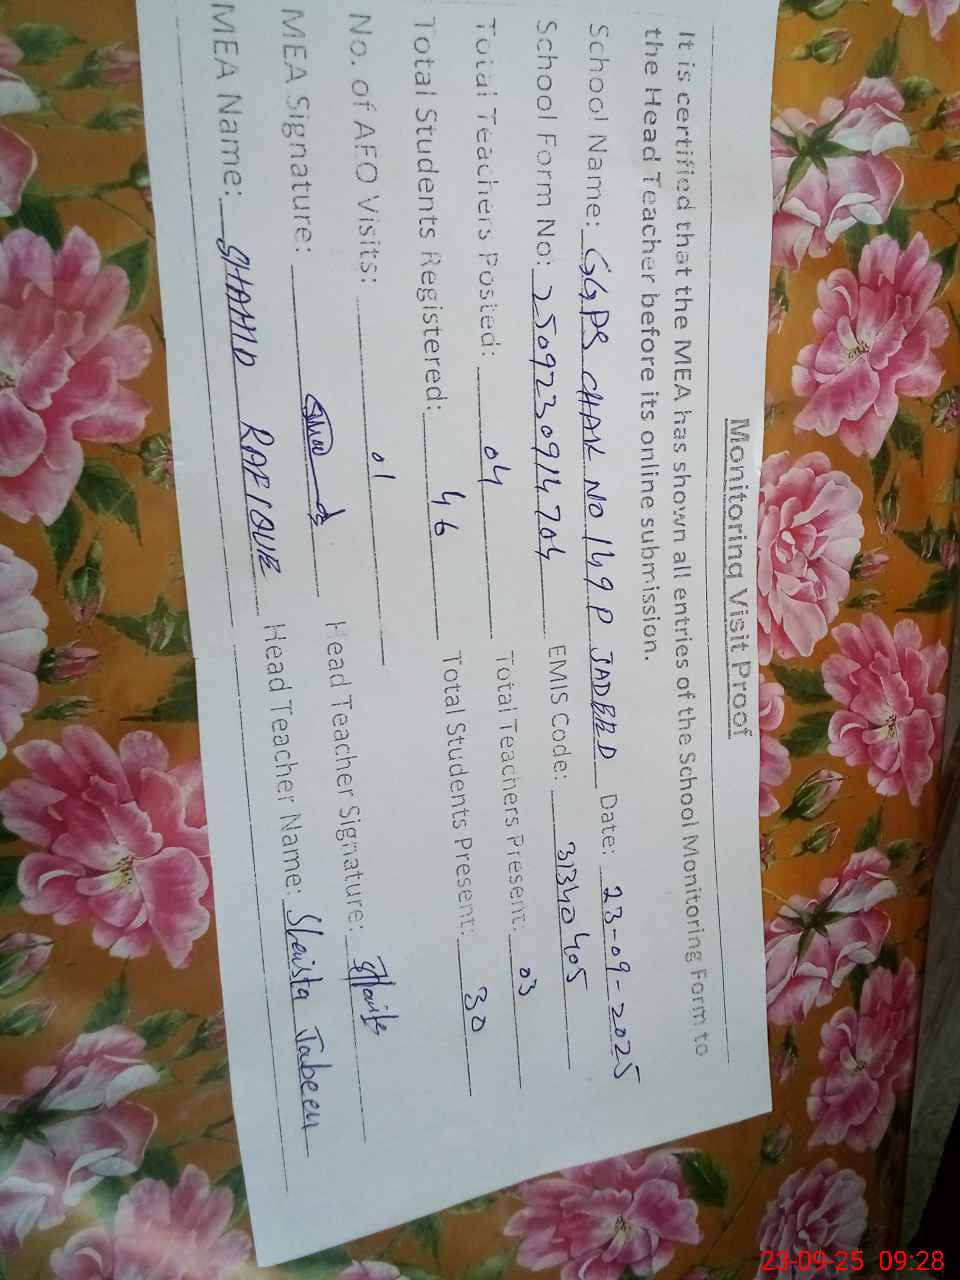 Monitoring Visit Proof
It is certified that the MEA has shown all entries of the School Monitoring Form to
the Head Teacher before its online submission.
School Name: GGPS CHAK NO 149 P JADEED Date: 23-09-2025
School Form No: 2509230914704 EMIS Code: 31340405
Total Teachers Posted: 04 Total Teachers Present: 03
Total Students Registered: 46 Total Students Present: 30
No. of AEO Visits: 01
MEA Signature: Head Teacher Signature:
MEA Name: SHAHID RAFIQUE Head Teacher Name: Shaista Jabeen
23-09-25 09:28